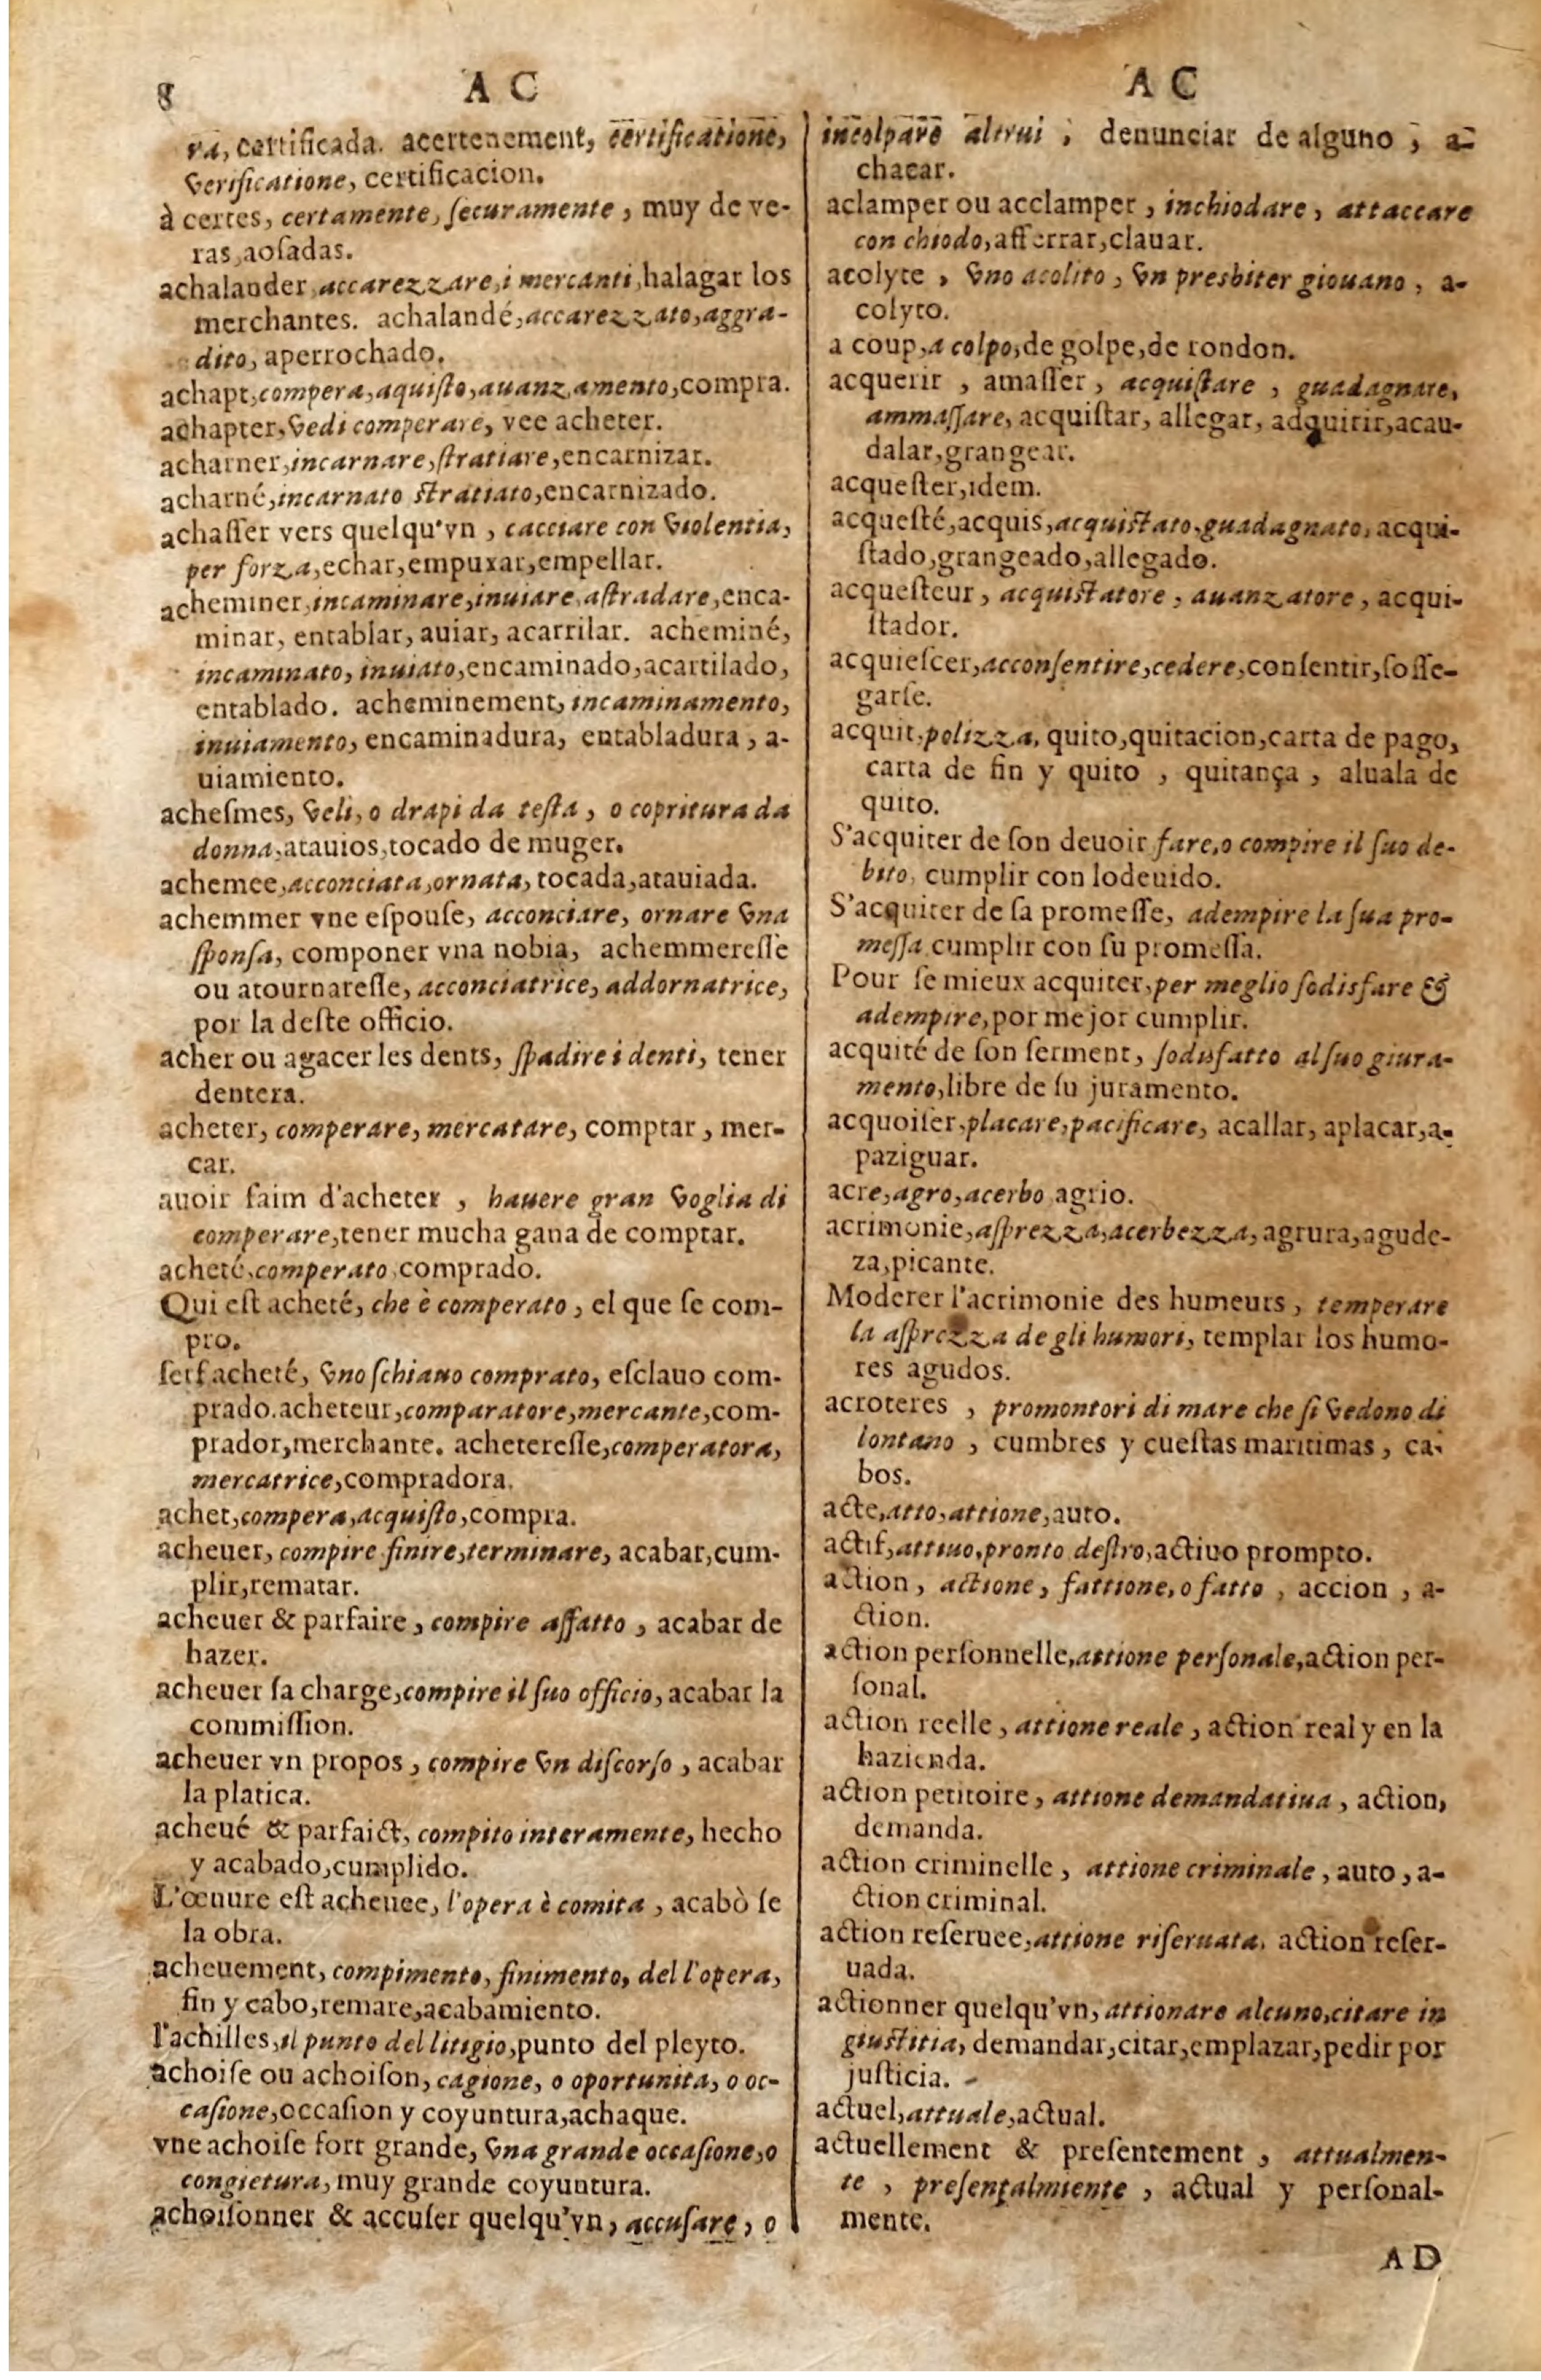 8 A C
ra, certificada. acertenement, certificatione,
verificatione, certificacion.
à certes, certamente, ſecuramente, muy de ve-
ras, aoſadas.
achalander, accarezzare, i mercanti, halagar los
merchantes. achalandé, accarezzato, aggra-
dito, aperrochado.
achapt, compera, aquiſto, auanzamento, compra.
achapter, vedi comperare, vee acheter.
acharner, incarnare, ſtratiare, encarnizar.
acharné, incarnato ſtratiato, encarnizado.
achaſſer vers quelqu'vn, cacciare con violentia,
per forza, echar, empuxar, empellar.
acheminer, incaminare, inuiare, aſtradare, enca-
minar, entablar, auiar, acarrilar. acheminé,
incaminato, inuiato, encaminado, acarrilado,
entablado. acheminement, incaminamento,
inuiamento, encaminadura, entabladura, a-
uiamiento.
acheſmes, veli, o drapi da teſta, o copritura da
donna, atauios, tocado de muger.
achemee, acconciata, ornata, tocada, atauiada.
achemmer vne eſpouſe, acconciare, ornare vna
ſponſa, componer vna nobia, achemmereſſe
ou atournareſſe, acconciatrice, addornatrice,
por la deſte officio.
acher ou agacer les dents, ſpadire i denti, tener
dentera.
acheter, comperare, mercatare, comprar, mer-
car.
auoir faim d'acheter, hauere gran voglia di
comperare, tener mucha gana de comprar.
acheté, comperato, comprado.
Qui eſt acheté, che è comperato, el que ſe com-
pro.
ſerf acheté, vno ſchiauo comprato, eſclauo com-
prado. acheteur, comparatore, mercante, com-
prador, merchante. achetereſſe, comperatora,
mercatrice, compradora.
achet, compera, acquiſto, compra.
acheuer, compire finire, terminare, acabar, cum-
plir, rematar.
acheuer & parfaire, compire affatto, acabar de
hazer.
acheuer ſa charge, compire il ſuo officio, acabar la
commiſſion.
acheuer vn propos, compire vn diſcorſo, acabar
la platica.
acheué & parfaict, compito interamente, hecho
y acabado, cumplido.
L'œuure eſt acheuee, l'opera è comita, acabò ſe
la obra.
acheuement, compimento, finimento, del l'opera,
fin y cabo, remare, acabamiento.
l'achilles, il punto del litigio, punto del pleyto.
achoiſe ou achoiſon, cagione, o oportunita, o oc-
caſione, occaſion y coyuntura, achaque.
vne achoiſe fort grande, vna grande occaſione, o
congietura, muy grande coyuntura.
achoiſonner & accuſer quelqu'vn, accuſare, o
A C
incolpare altrui, denunciar de alguno, a-
chacar.
aclamper ou acclamper, inchiodare, attaccare
con chiodo, afferrar, clauar.
acolyte, vno acolito, vn presbiter giouano, a-
colyto.
a coup, a colpo, de golpe, de rondon.
acquerir, amaſſer, acquiſtare, guadagnare,
ammaſſare, acquiſtar, allegar, adquirir, acau-
dalar, grangear.
acqueſter, idem.
acqueſté, acquis, acquiſtato, guadagnato, acqui-
ſtado, grangeado, allegado.
acqueſteur, acquiſtatore, auanzatore, acqui-
ſtador.
acquieſcer, acconſentire, cedere, conſentir, ſoſſe-
garſe.
acquit, polizza, quito, quitacion, carta de pago,
carta de fin y quito, quitança, aluala de
quito.
S'acquiter de ſon deuoir fare, o compire il ſuo de-
bito, cumplir con lodeuido.
S'acquiter de ſa promeſſe, adempire la ſua pro-
meſſa cumplir con ſu promeſſa.
Pour ſe mieux acquiter, per meglio ſodisfare &
adempire, por mejor cumplir.
acquité de ſon ſerment, ſodisfatto al ſuo giura-
mento, libre de ſu juramento.
acquoiſer, placare, pacificare, acallar, aplacar, a-
paziguar.
acre, agro, acerbo agrio.
acrimonie, aſprezza, acerbezza, agrura, agude-
za, picante.
Moderer l'acrimonie des humeurs, temperare
la aſprezza de gli humori, templar los humo-
res agudos.
acroteres, promontori di mare che ſi vedono di
lontano, cumbres y cueſtas maritimas, ca-
bos.
acte, atto, attione, auto.
actif, attiuo, pronto deſtro, actiuo prompto.
action, actione, fattione, o fatto, accion, a-
ction.
action perſonnelle, attione perſonale, action per-
ſonal.
action reelle, attione reale, action real y en la
hazienda.
action petitoire, attione demandatiua, action,
demanda.
action criminelle, attione criminale, auto, a-
ction criminal.
action reſeruee, attione riſeruata, action reſer-
uada.
actionner quelqu'vn, attionare alcuno, citare in
giuſtitia, demandar, citar, emplazar, pedir por
juſticia.
actuel, attuale, actual.
actuellement & preſentement, attualmen-
te, preſentalmiente, actual y perſonal-
mente.
AD